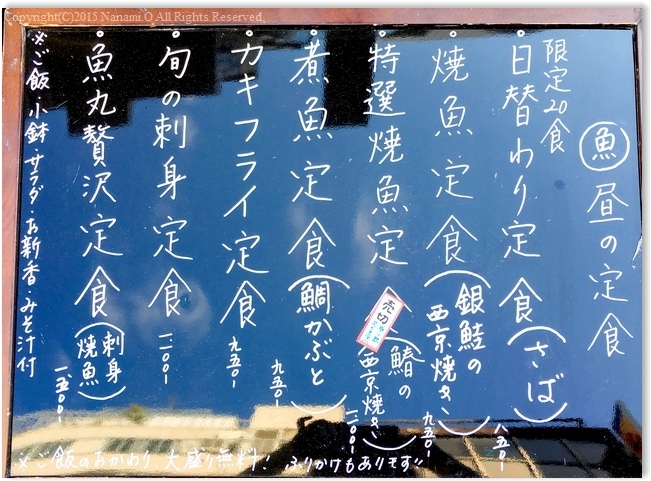 Copyright(C)2015 Nanami.O All Rights Reserved.
魚 昼の定食
限定20食
・日替わり定食(さば) 八五〇-
・焼魚定食(銀鮭の西京焼き) 九五〇-
・特選焼魚定 売切 (鰆の西京焼き) 一二〇〇-
・煮魚定食(鯛かぶと) 九五〇-
・カキフライ定食 九五〇-
・旬の刺身定食 一二〇〇-
・魚丸贅沢定食(刺身 焼魚) 一五〇〇-
※ご飯・小鉢・サラダ・お新香・みそ汁付
※ご飯のおかわり 大盛り無料! ふりかけもあります!!